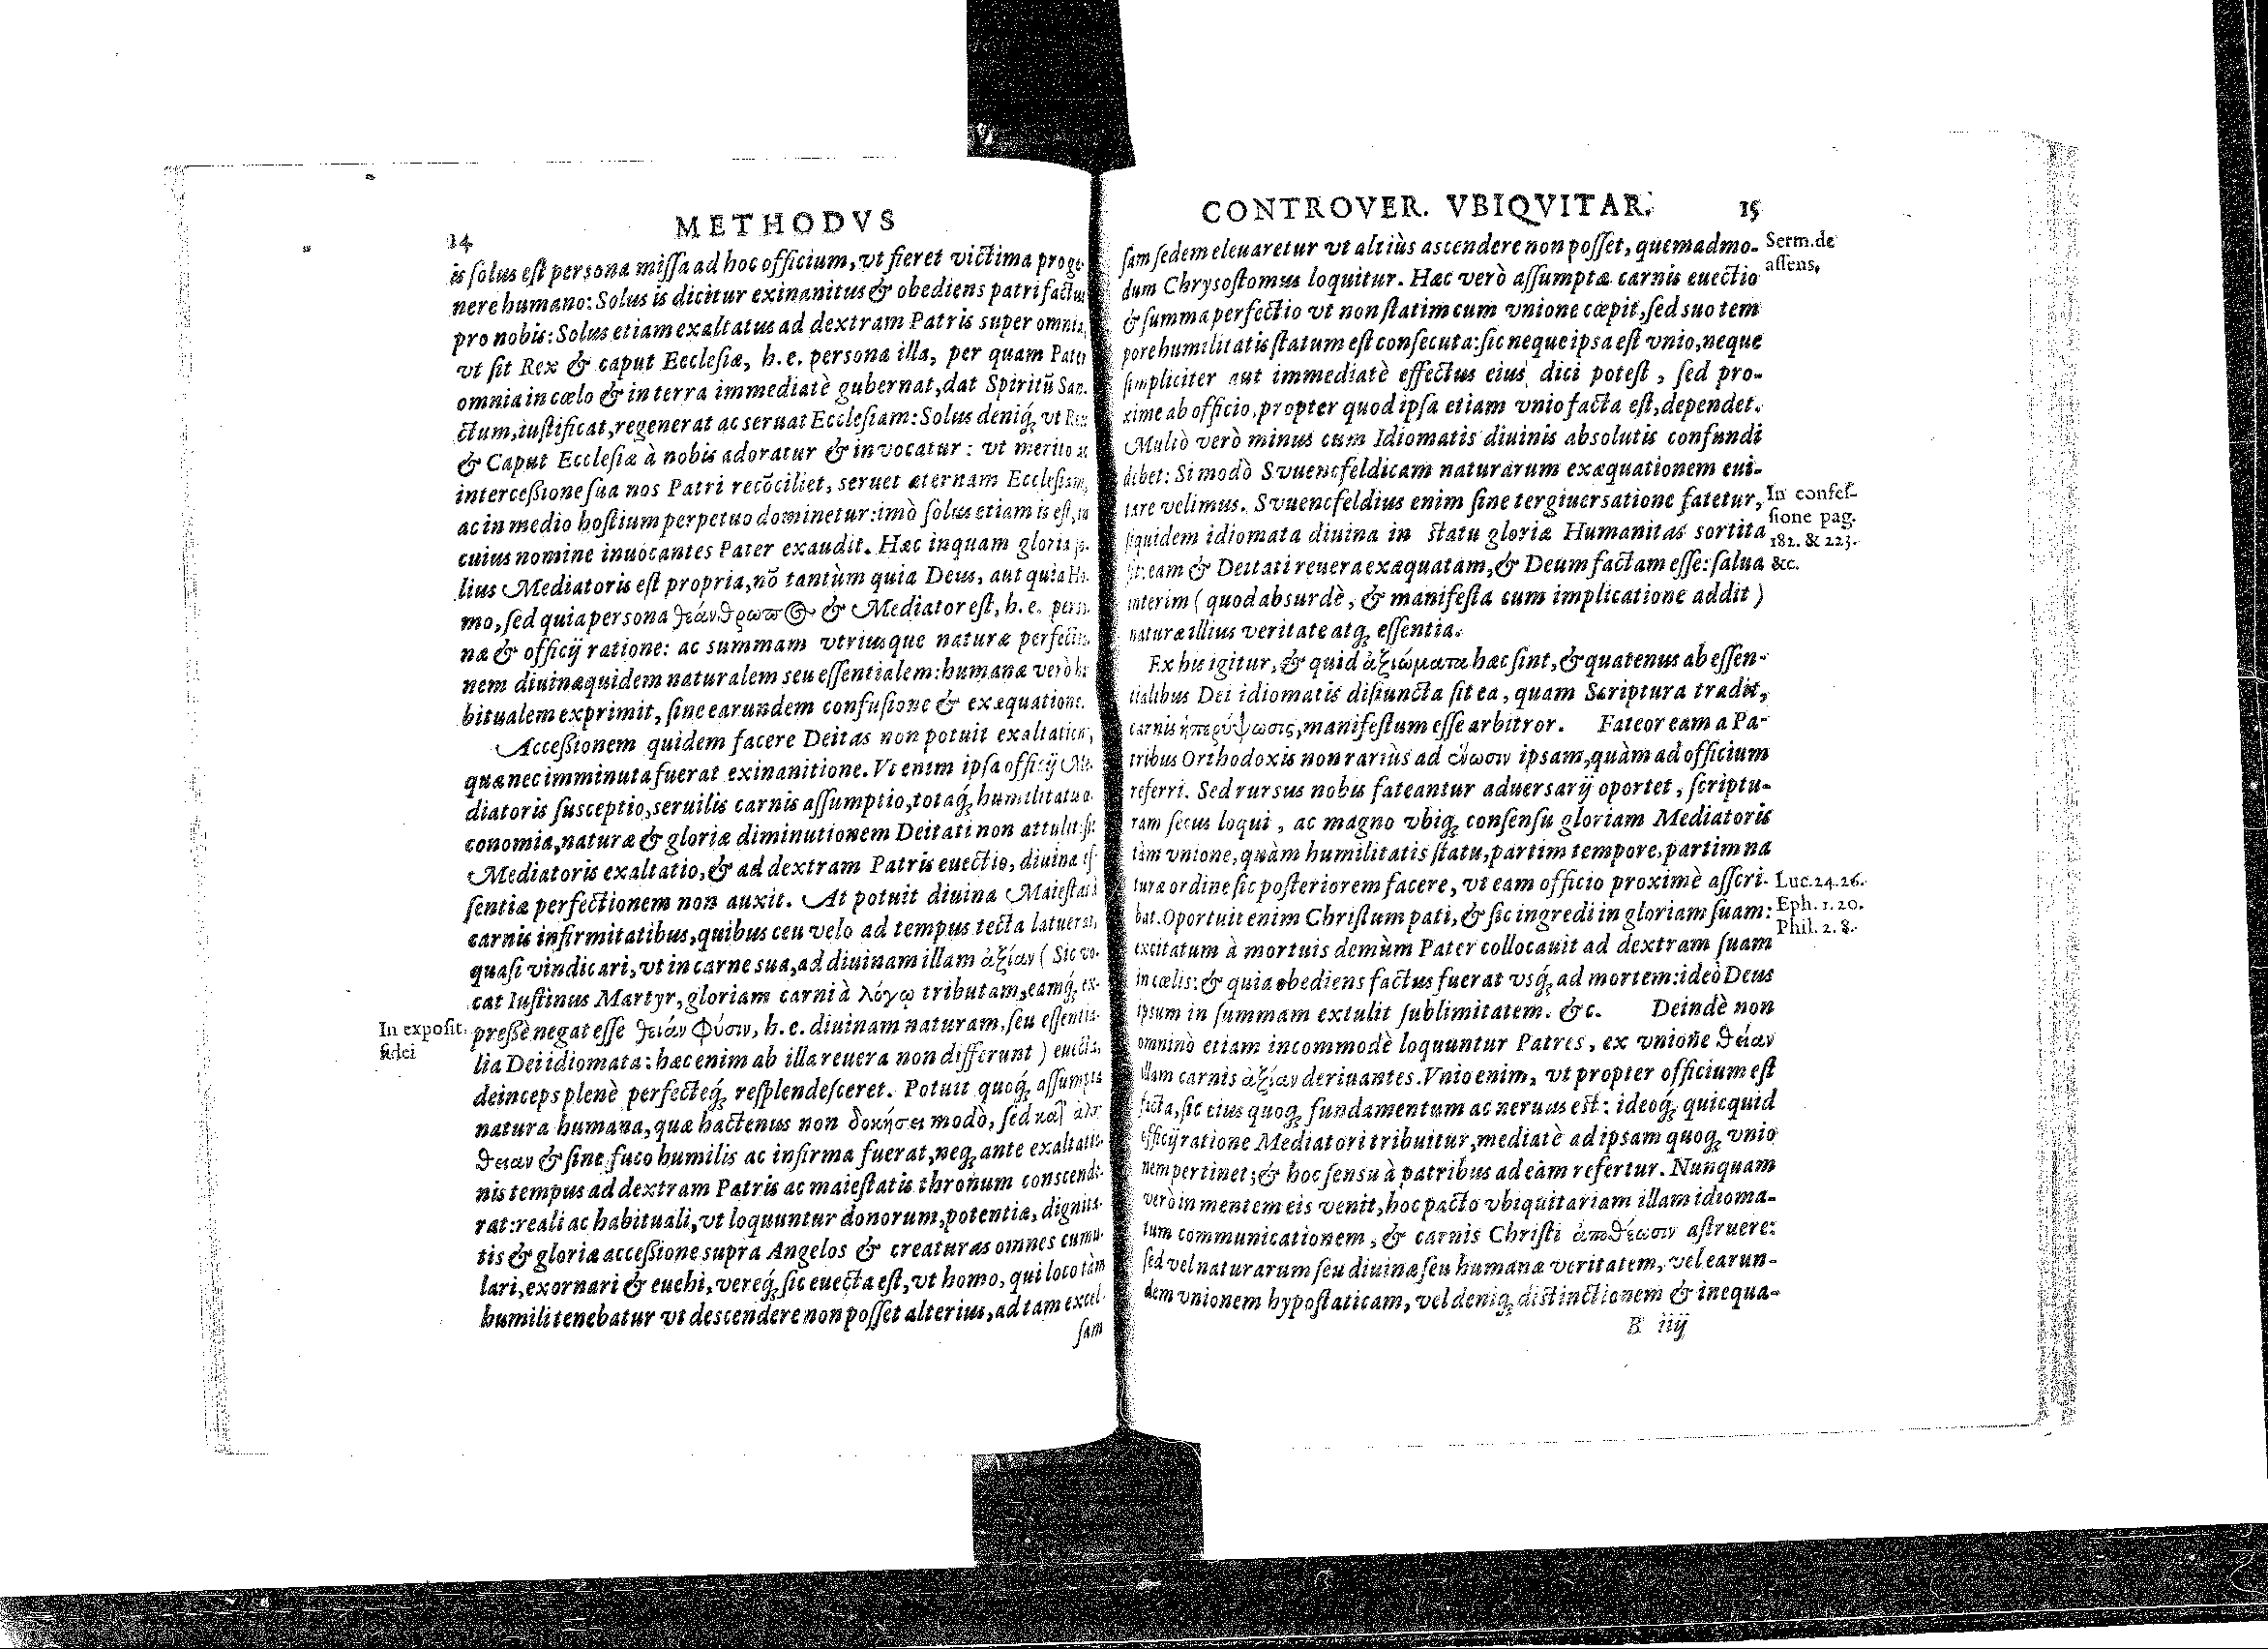 14 METHODVS
is solus est persona missa ad hoc officium, vt fieret victima pro ge-
nere humano: Solus is dicitur exinanitus & obediens patri factus
pro nobis: Solus etiam exaltatus ad dextram Patris super omnia,
vt sit Rex & caput Ecclesiæ, h. e. persona illa, per quam Pater
omnia in cœlo & in terra immediatè gubernat, dat Spiritũ San-
ctum, iustificat, regenerat ac seruat Ecclesiam: Solus deniq́; vt Rex
& Caput Ecclesiæ à nobis adoratur & invocatur: vt merito ac
intercessione sua nos Patri recõciliet, seruet æternam Ecclesiam,
ac in medio hostium perpetuo dominetur: imò solus etiam is est, in
cuius nomine inuocantes Pater exaudit. Hæc inquam gloria so-
lius Mediatoris est propria, nõ tantùm quia Deus, aut quia Ho-
mo, sed quia persona θεάνθρωπος & Mediator est, h. e. perso-
næ & officij ratione: ac summam vtriusque naturæ perfectio-
nem diuinæ quidem naturalem seu essentialem: humanæ verò ha-
bitualem exprimit, sine earundem confusione & exæquatione.
Accessionem quidem facere Deitas non potuit exaltatione,
quæ nec imminuta fuerat exinanitione. Vt enim ipsa officij Me-
diatoris susceptio, seruilis carnis assumptio, totaq́; humilitatis œ-
conomia, naturæ & gloriæ diminutionem Deitati non attulit: sic
Mediatoris exaltatio, & ad dextram Patris euectio, diuina es-
sentiæ perfectionem non auxit. At potuit diuina Maiestas à
carnis infirmitatibus, quibus ceu velo ad tempus tecta latuerat,
quasi vindicari, vt in carne sua, ad diuinam illam ἀξίαν (Sic vo-
cat Iustinus Martyr, gloriam carni à λόγῳ tributam, eamq́; ex-
In exposit. fidei
pressè negat esse θείαν φύσιν, h. e. diuinam naturam, seu essentia-
lia Dei idiomata: hæc enim ab illa reuera non differunt) euecta,
deinceps plenè perfecteq́; resplendesceret. Potuit quoq́; assumpta
natura humana, quæ hactenus non δοκήσει modò, sed κατ' ἀλή-
θειαν & sine fuco humilis ac infirma fuerat, neq; ante exaltatio-
nis tempus ad dextram Patris ac maiestatis thronum conscende-
rat: reali ac habituali, vt loquuntur donorum, potentiæ, dignita-
tis & gloriæ accessione supra Angelos & creaturas omnes cumu-
lari, exornari & euehi, vereq́; sic euecta est, vt homo, qui loco tàm
humili tenebatur vt descendere non posset alterius, ad tam excel-
sam
CONTROVER. VBIQVITAR. 15
sam sedem eleuaretur vt altiùs ascendere non posset, quemadmo-
Serm. de assens.
dum Chrysostomus loquitur. Hæc verò assumptæ carnis euectio
& summa perfectio vt non statim cum vnione cœpit, sed suo tem
pore humilitatis statum est consecuta: sic neque ipsa est vnio, neque
simpliciter aut immediatè effectus eius dici potest, sed pro-
xime ab officio, propter quod ipsa etiam vnio facta est, dependet.
Multò verò minus cum Idiomatis diuinis absolutis confundi
debet: Si modò Svuencfeldicam naturarum exæquationem eui-
tare velimus. Svuencfeldius enim sine tergiuersatione fatetur,
In confes-
sione pag.
182. & 223.
&c.
siquidem idiomata diuina in statu gloriæ Humanitas sortita
sit: eam & Deitati reuera exæquatam, & Deum factam esse: salua
interim (quod absurdè, & manifesta cum implicatione addit)
naturæ illius veritate atq; essentia.
Ex his igitur, & quid ἀξιώματα hæc sint, & quatenus ab essen-
tialibus Dei idiomatis disiuncta sit ea, quam Scriptura tradit,
carnis ὑπερύψωσις, manifestum esse arbitror. Fateor eam a Pa-
tribus Orthodoxis non rariùs ad ἕνωσιν ipsam, quàm ad officium
referri. Sed rursus nobis fateantur aduersarij oportet, scriptu-
ram secus loqui, ac magno vbiq; consensu gloriam Mediatoris
tàm vnione, quàm humilitatis statu, partim tempore, partim na
turæ ordine sic posteriorem facere, vt eam officio proximè asscri-
Luc. 24. 26.
Eph. 1. 20.
Phil. 2. 8.
bat. Oportuit enim Christum pati, & sic ingredi in gloriam suam:
excitatum à mortuis demùm Pater collocauit ad dextram suam
in cœlis: & quia obediens factus fuerat vsq́; ad mortem: ideò Deus
ipsum in summam extulit sublimitatem. &c. Deindè non
omninò etiam incommodè loquuntur Patres, ex vnione θείαν
illam carnis ἀξίαν deriuantes. Vnio enim, vt propter officium est
facta, sic eius quoq; fundamentum ac neruus est: ideoq́; quicquid
officij ratione Mediatori tribuitur, mediatè ad ipsam quoq; vnio
nem pertinet; & hoc sensu à patribus ad eàm refertur. Nunquam
verò in mentem eis venit, hoc pacto vbiquitariam illam idioma-
tum communicationem, & carnis Christi ἀποθέωσιν astruere:
sed vel naturarum seu diuinæ seu humanæ veritatem, vel earun-
dem vnionem hypostaticam, vel deniq; distinctionem & inequa-
B iiij